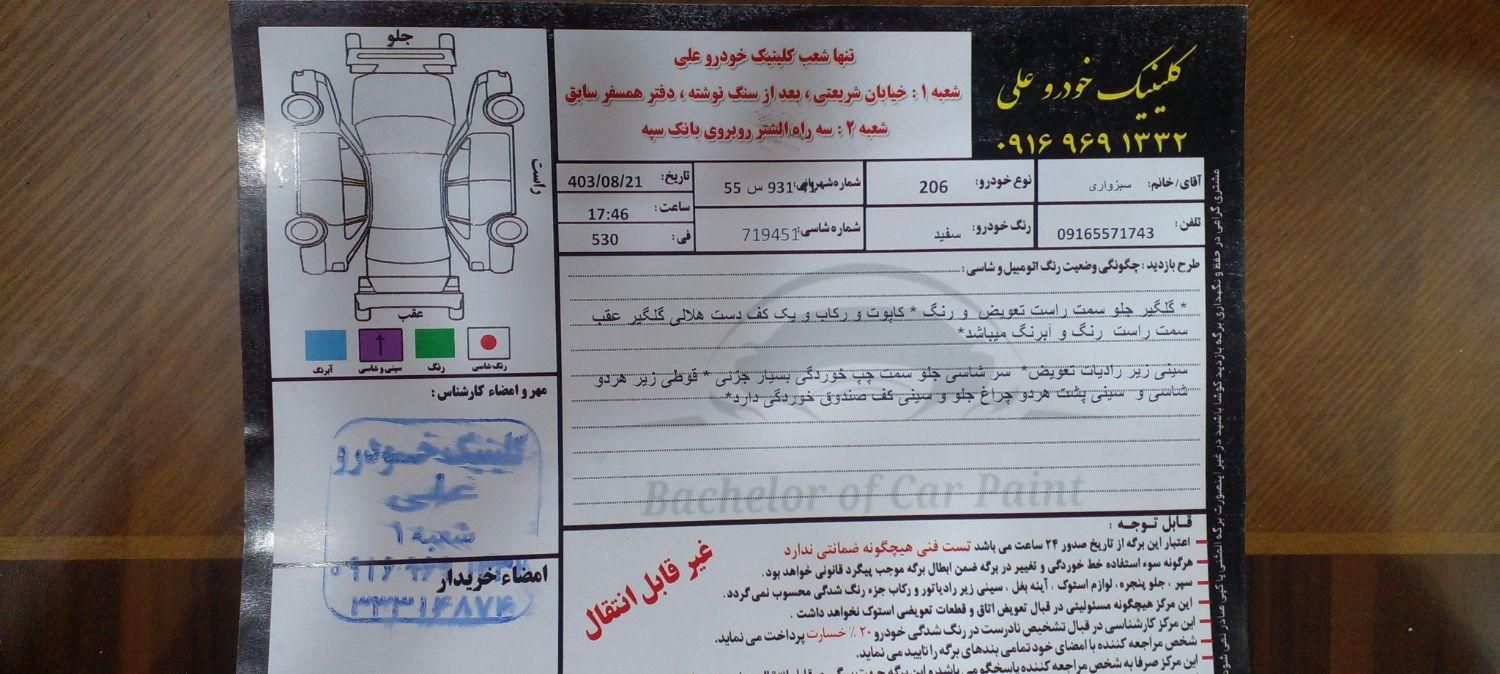 کلینیک خودرو علی
۰۹۱۶ ۹۶۹ ۱۳۳۲
تنها شعب کلینیک خودرو علی
شعبه ۱ : خیابان شریعتی ، بعد از سنگ نوشته ، دفتر همسفر سابق
شعبه ۲ : سه راه الشتر روبروی بانک سپه
آقای/خانم: سبزواری
نوع خودرو: 206
شماره شهربانی: 931 س 55
تاریخ: 403/08/21
ساعت: 17:46
تلفن: 09165571743
رنگ خودرو: سفید
شماره شاسی: 719451
فی: 530
طرح بازدید : چگونگی وضعیت رنگ اتومبیل و شاسی :
* گلگیر جلو سمت راست تعویض و رنگ * کاپوت و رکاب و یک کف دست هلالی گلگیر عقب
سمت راست رنگ و آبرنگ میباشد*
سینی زیر رادیات تعویض* سر شاسی جلو سمت چپ خوردگی بسیار جزئی * قوطی زیر هردو
شاسی و سینی پشت هردو چراغ جلو و سینی کف صندوق خوردگی دارد*
Bachelor of Car Paint
جلو
راست
عقب
رنگ شاسی
رنگ
سینی و شاسی
آبرنگ
مهر و امضاء کارشناس :
کلینیک خودرو
علی
شعبه ۱
۳۳۳۱۴۸۷۴
امضاء خریدار
غیر قابل انتقال
قابل توجه :
اعتبار این برگه از تاریخ صدور ۲۴ ساعت می باشد تست فنی هیچگونه ضمانتی ندارد
هرگونه سوء استفاده خط خوردگی و تغییر در برگه ضمن ابطال برگه موجب پیگرد قانونی خواهد بود.
سپر ، جلو پنجره ، لوازم استوک ، آینه بغل ، سینی زیر رادیاتور و رکاب جزء رنگ شدگی محسوب نمی گردد.
این مرکز هیچگونه مسئولیتی در قبال تعویض اتاق و قطعات تعویضی استوک نخواهد داشت .
این مرکز کارشناسی در قبال تشخیص نادرست در رنگ شدگی خودرو ۲۰ ٪ خسارت پرداخت می نماید.
شخص مراجعه کننده با امضای خود تمامی بندهای برگه را تایید می نماید.
این مرکز صرفا به شخص مراجعه کننده پاسخگو می باشد و این برگه
مشتری گرامی در حفظ و نگهداری برگه بازدید کوشا باشید در غیر اینصورت برگه المثنی یا کپی صادر نمی شود